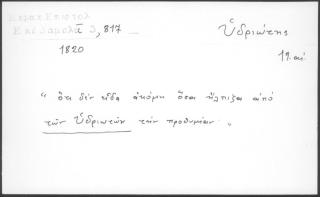 Κεραμ Επιστολ
Επεξαμολᾶ 3,817
1820
Ὑδριώτης
19. αἰ.
" ὅτι δὲν εἶδα ἀκόμη ὅσαι ἤλπιζα ἀπό
τῶν Ὑδριωτῶν τὴν προθυμίαν. "